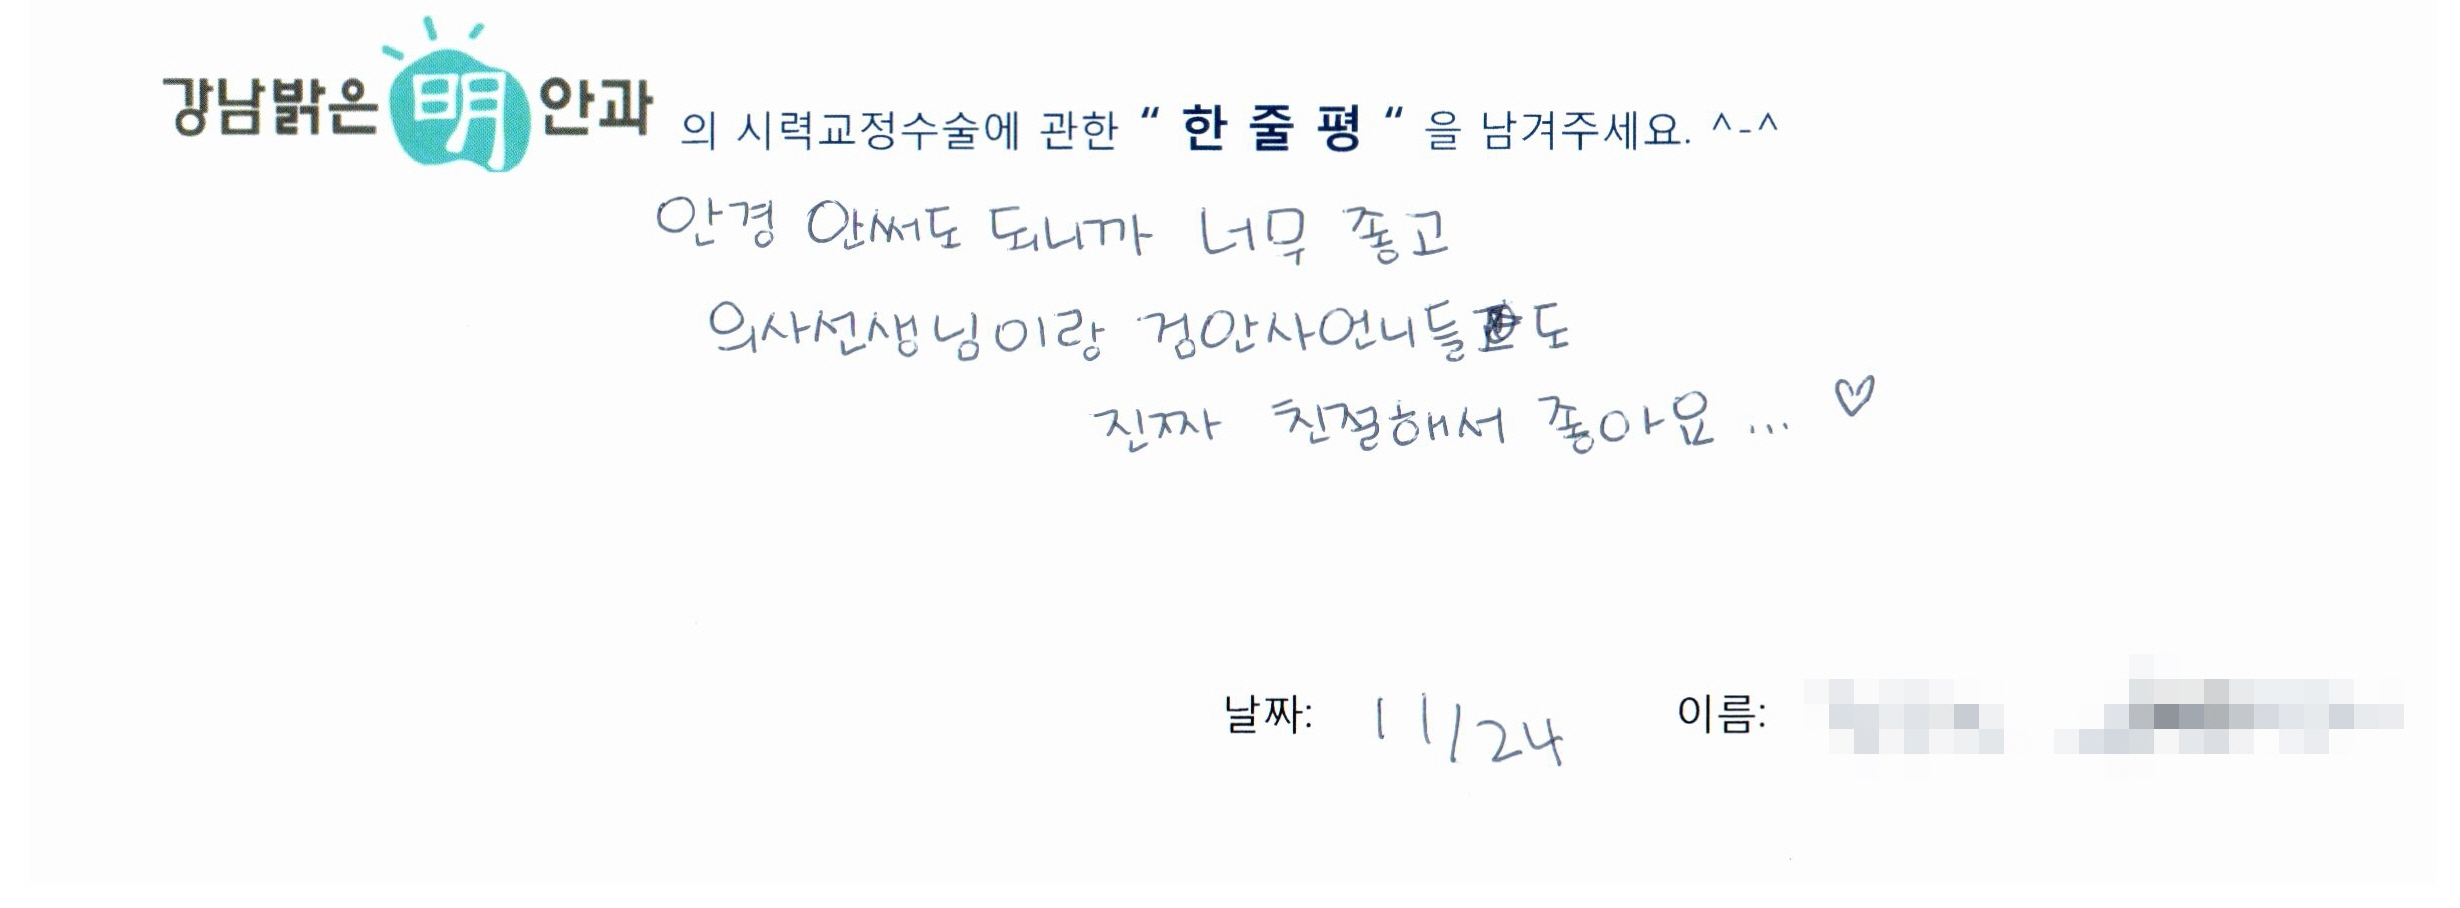 강남밝은 明 안과 의 시력교정수술에 관한 “ 한 줄 평 “ 을 남겨주세요. ^-^
안경 안써도 되니까 너무 좋고
의사선생님이랑 검안사언니들도
진짜 친절해서 좋아요... ♡
날짜: 11/24 이름: